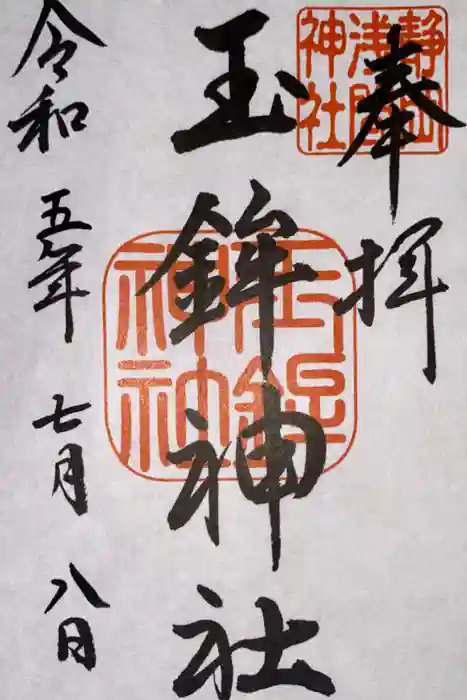 奉拝
静岡浅間神社
玉鉾神社
玉鉾神社
令和五年七月八日